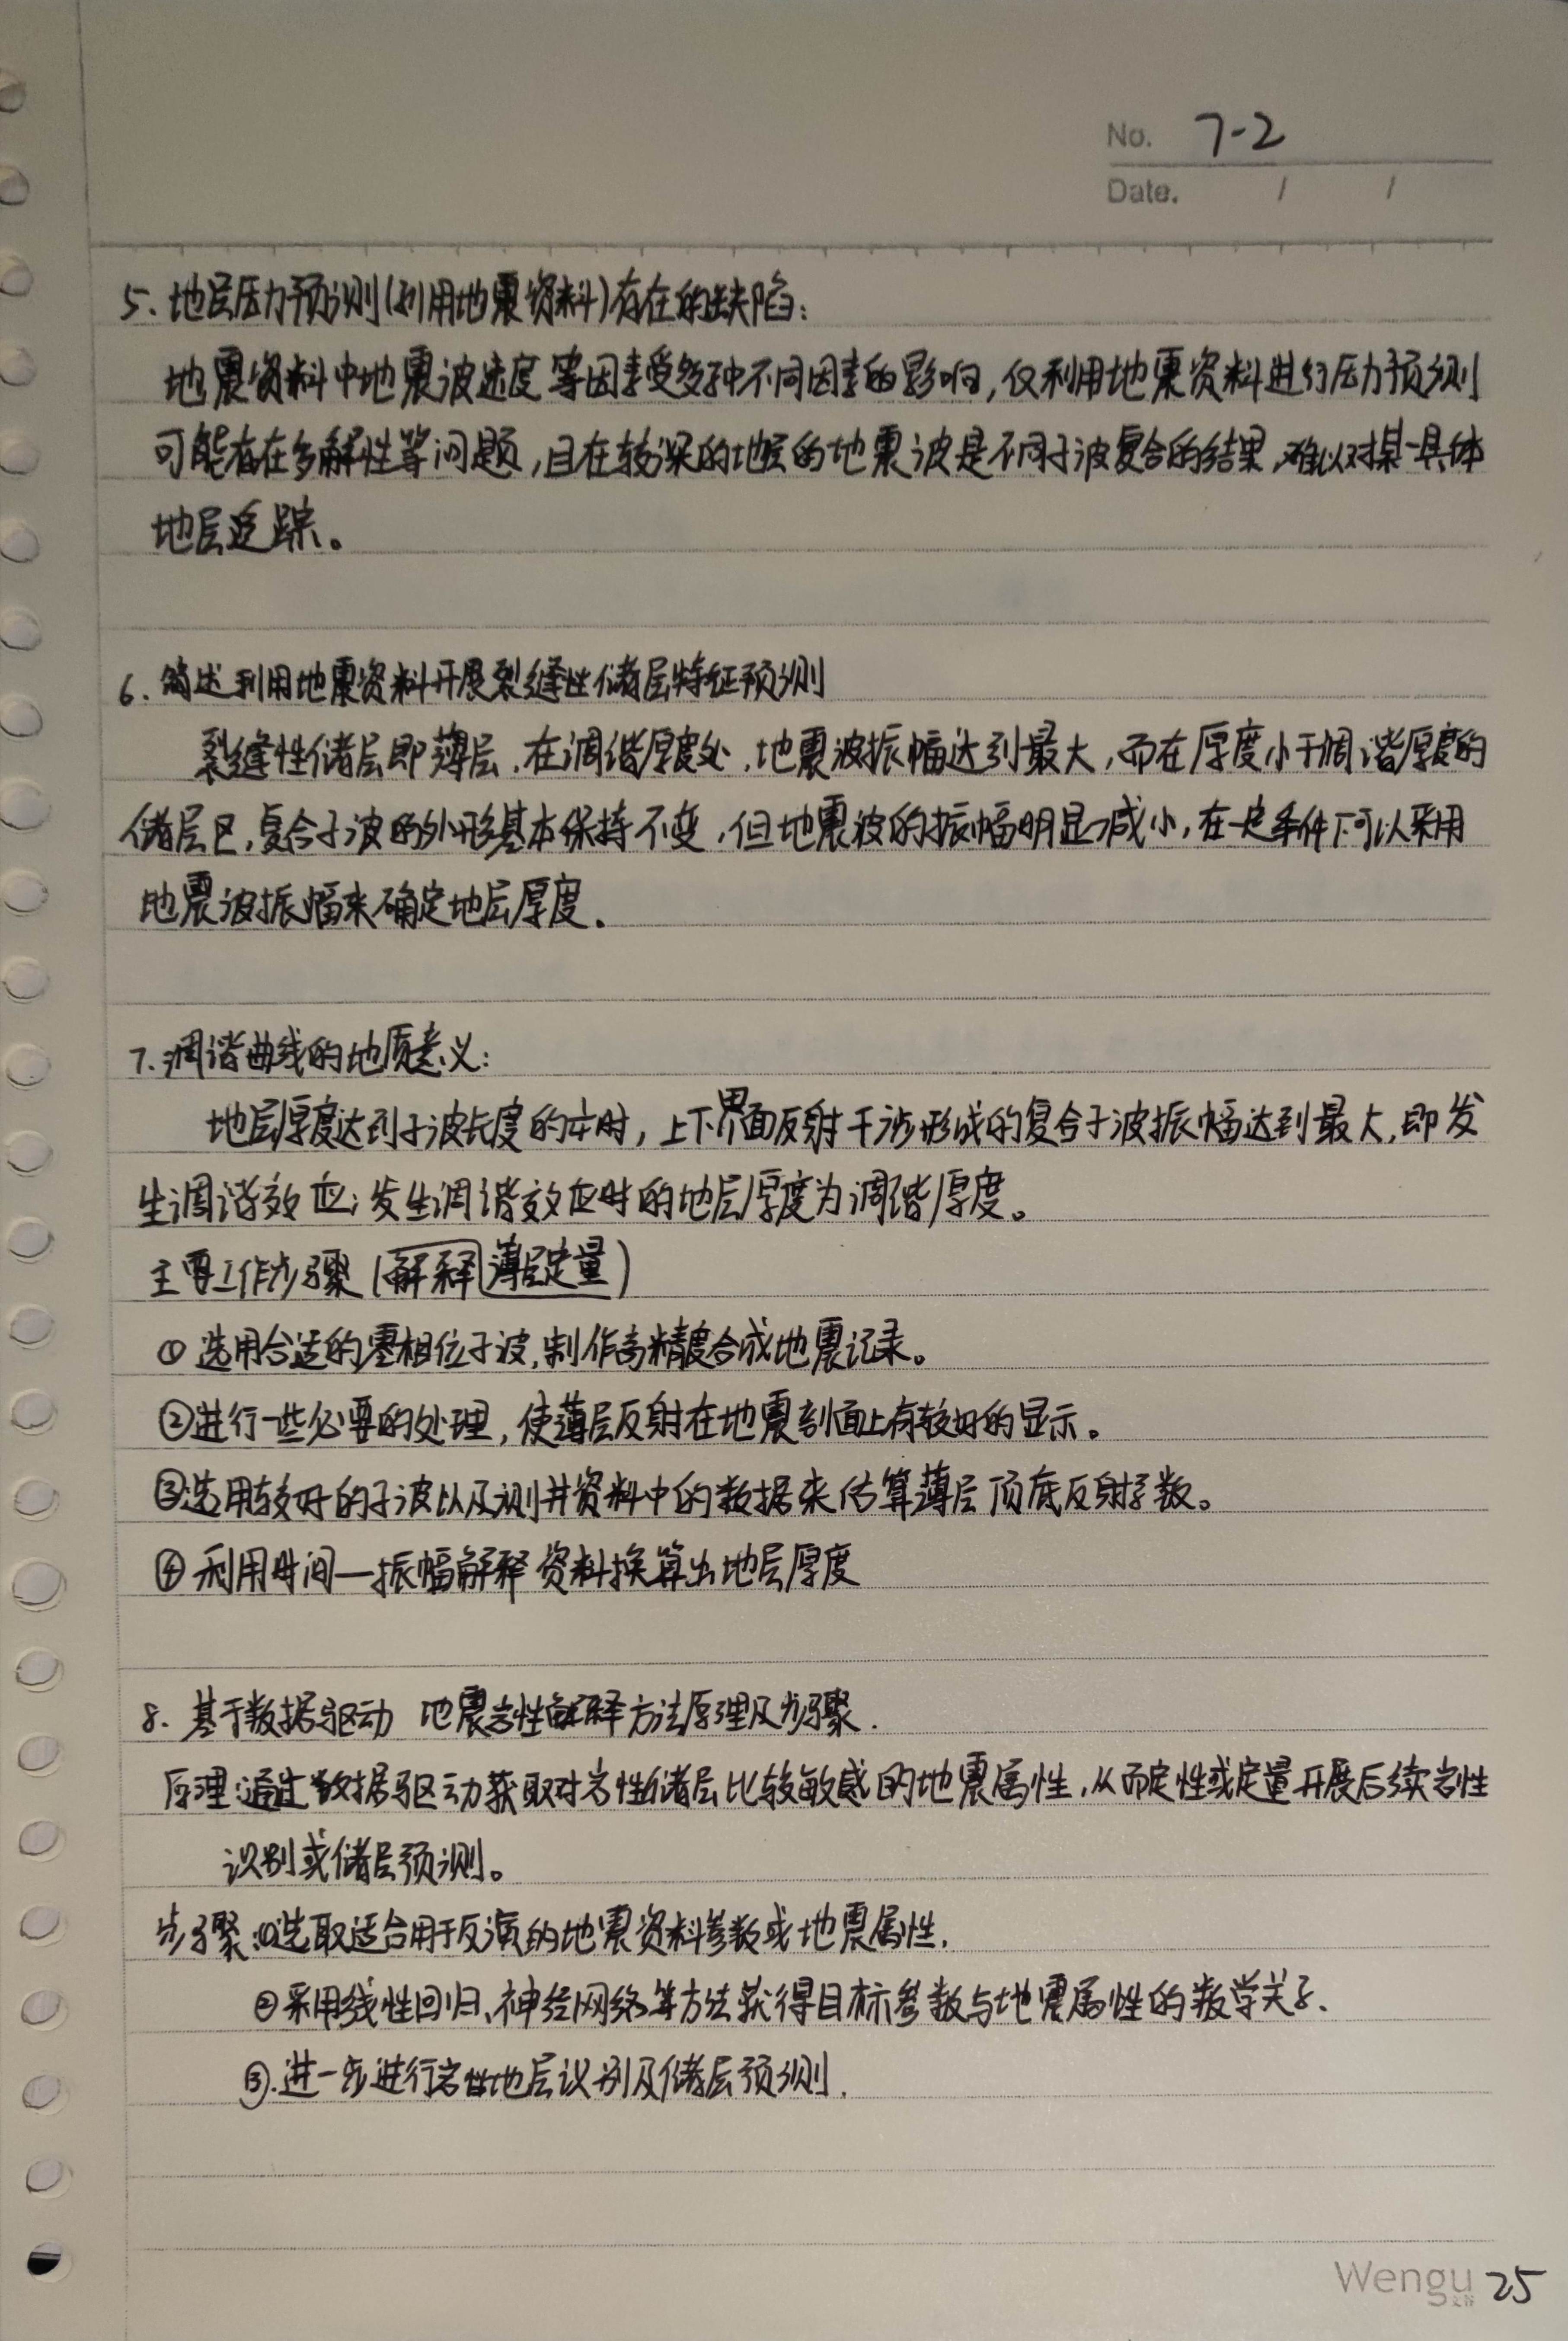 No. 7-2
Date. / /
5. 地层压力预测(利用地震资料)存在的缺陷:
地震资料中地震波速度等因素受多种不同因素的影响,仅利用地震资料进行压力预测
可能存在多解性等问题,且在较深的地层的地震波是不同子波复合的结果,难以对某一具体
地层追踪。
6. 简述利用地震资料开展裂缝性储层特征预测
裂缝性储层即薄层.在调谐厚度处,地震波振幅达到最大,而在厚度小于调谐厚度的
储层区,复合子波的外形基本保持不变,但地震波的振幅明显减小,在一定条件下可以采用
地震波振幅来确定地层厚度.
7. 调谐曲线的地质意义:
地层厚度达到子波长度的 时,上下界面反射干涉形成的复合子波振幅达到最大,即发
生调谐效应;发生调谐效应时的地层厚度为调谐厚度。
主要工作步骤(解释薄层定量)
①选用合适的零相位子波,制作高精度合成地震记录。
②进行一些必要的处理,使薄层反射在地震剖面上有较好的显示。
③选用较好的子波以及测井资料中的数据来估算薄层顶底反射系数。
④利用时间—振幅解释资料换算出地层厚度
8. 基于数据驱动 地震岩性解释方法原理及步骤.
原理:通过数据驱动获取对岩性储层比较敏感的地震属性,从而定性或定量开展后续岩性
识别或储层预测。
步骤:①选取适合用于反演的地震资料参数或地震属性.
②采用线性回归、神经网络等方法获得目标参数与地震属性的数学关系.
③.进一步进行岩性地层识别及储层预测.
Wengu 25